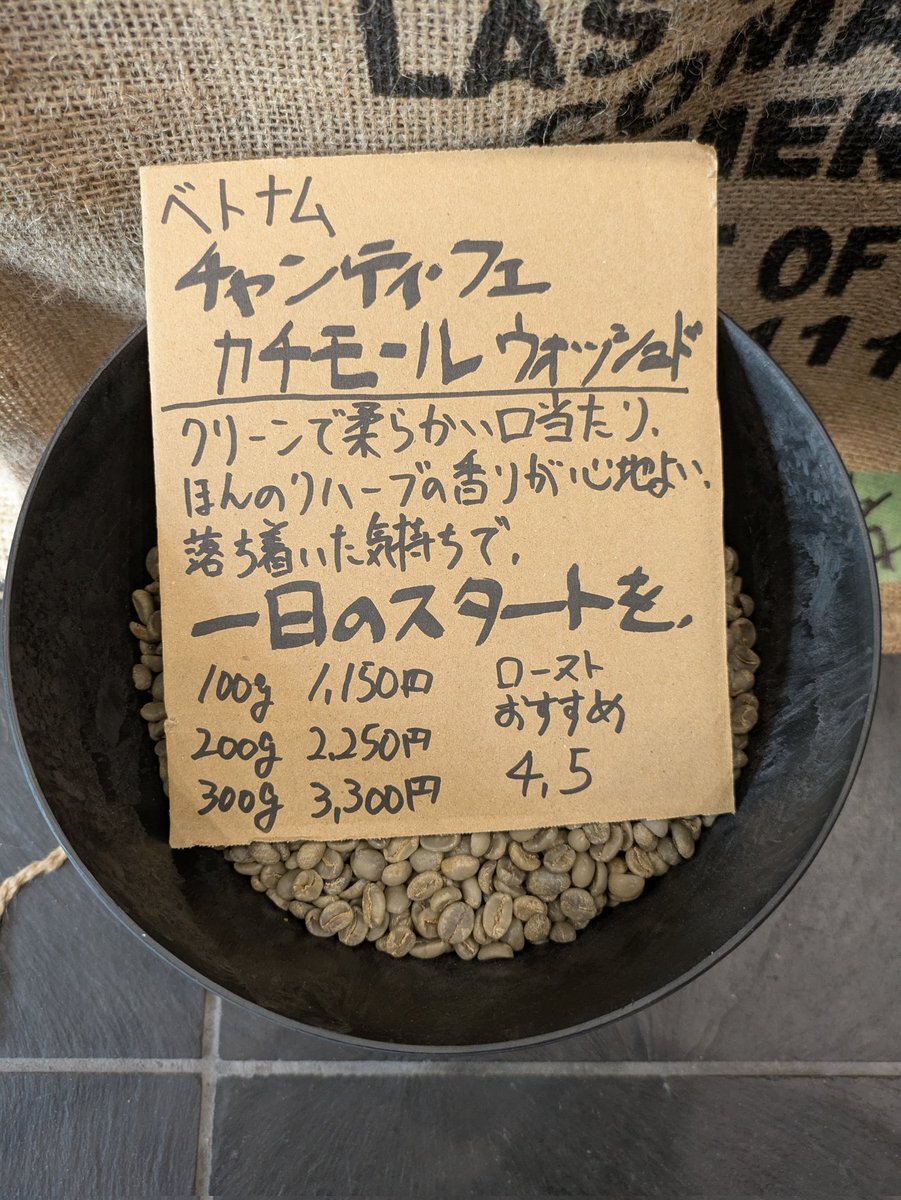 LAS MA
COMER
OF
111
ベトナム
チャンティ・フェ
カチモール ウォッシュド
クリーンで柔らかい口当たり、
ほんのりハーブの香りが心地よい、
落ち着いた気持ちで、
一日のスタートを、
100g 1,150円
200g 2,250円
300g 3,300円
ロースト
おすすめ
4,5